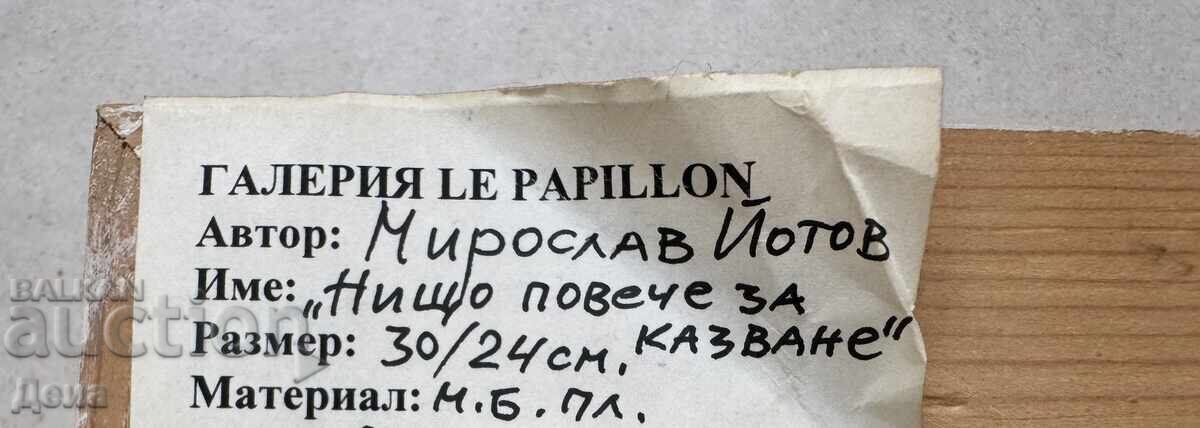 ГАЛЕРИЯ LE PAPILLON
Автор: Мирослав Йотов
Име: „Нищо повече за
казване"
Размер: 30/24 см.
Материал: м.б. пл.
BALKAN
auction
Деиа